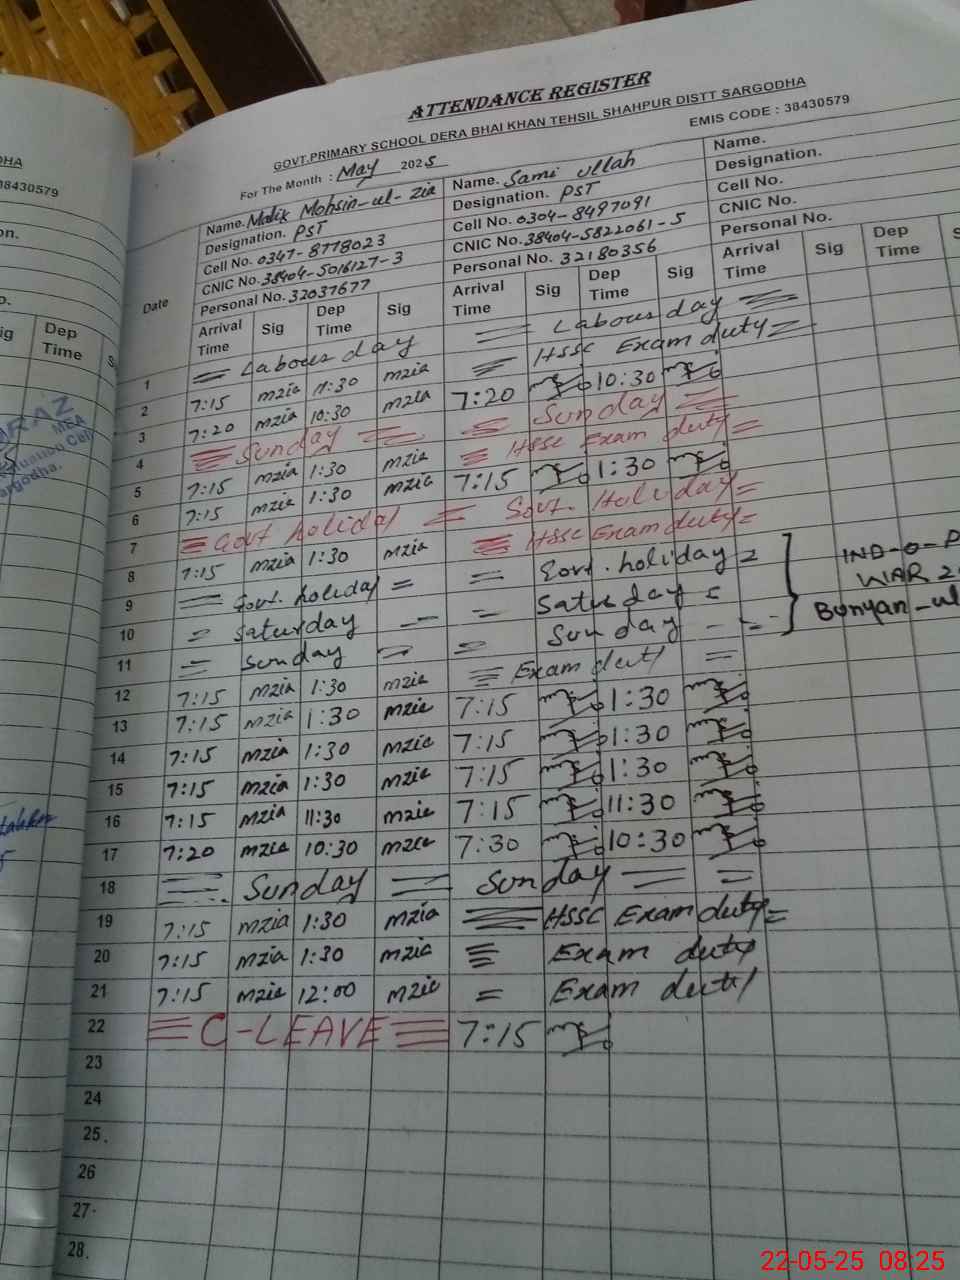 ATTENDANCE REGISTER
GOVT.PRIMARY SCHOOL DERA BHAI KHAN TEHSIL SHAHPUR DISTT SARGODHA
EMIS CODE : 38430579
For The Month : May 2025
Name. Malik Mohsin-ul-Zia Name. Sami ullah Name.
Designation. PST Designation. PST Designation.
Cell No. 0347-8778023 Cell No. 0304-8497091 Cell No.
CNIC No. 38404-5016127-3 CNIC No. 38404-5822061-5 CNIC No.
Personal No. 32037677 Personal No. 32180356 Personal No.
Date Arrival Time Sig Dep Time Sig Arrival Time Sig Dep Time Sig Arrival Time Sig Dep Time S
1 = Labour day = = Labour day =
2 7:15 mzia 11:30 mzia = HSSC Exam duty =
3 7:20 mzia 10:30 mzia 7:20 10:30
4 = Sunday = = Sunday =
5 7:15 mzia 1:30 mzia = HSSC Exam duty =
6 7:15 mzia 1:30 mzia 7:15 1:30
7 = Govt holiday = Govt. Holiday =
8 7:15 mzia 1:30 mzia = HSSC Exam duty =
9 = Govt. holiday = = Govt. holiday =
10 = Saturday - = Saturday =
11 = Sunday = = Sunday - =
IND-O-P
WAR 2
Bunyan-ul
12 7:15 mzia 1:30 mzia = Exam duty =
13 7:15 mzia 1:30 mzia 7:15 1:30
14 7:15 mzia 1:30 mzia 7:15 1:30
15 7:15 mzia 1:30 mzia 7:15 1:30
16 7:15 mzia 11:30 mzia 7:15 11:30
17 7:20 mzia 10:30 mzia 7:30 10:30
18 = Sunday = Sunday = =
19 7:15 mzia 1:30 mzia = HSSC Exam duty =
20 7:15 mzia 1:30 mzia = Exam duty
21 7:15 mzia 12:00 mzia = Exam duty
22 = C-LEAVE = 7:15
23
24
25.
26
27.
28.
DHA
38430579
on.
o.
ig Dep Time S
MEA
Cell
argodha.
22-05-25 08:25